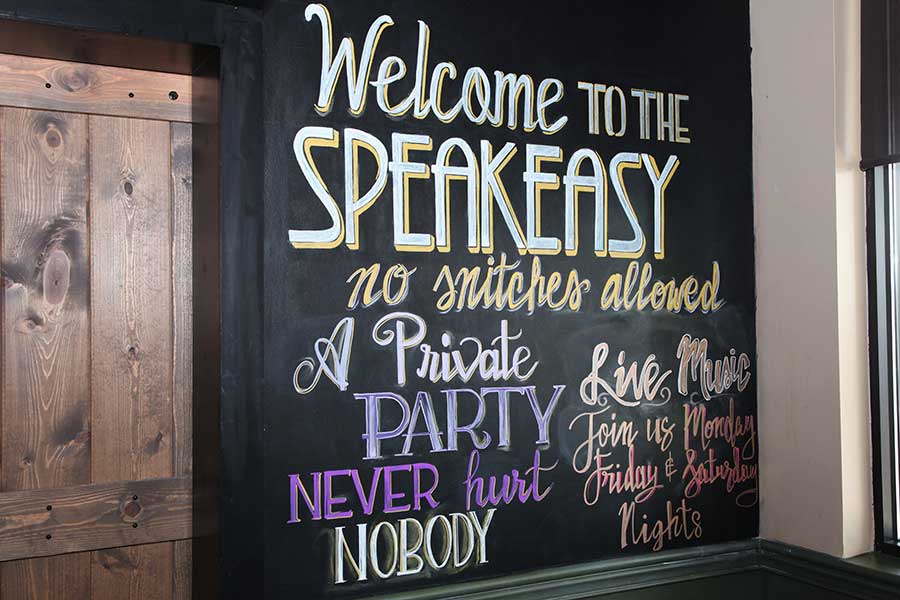 Welcome TO THE
SPEAKEASY
no snitches allowed
A Private
PARTY
NEVER hurt
NOBODY
Live Music
Join us Monday
Friday & Saturday
Nights